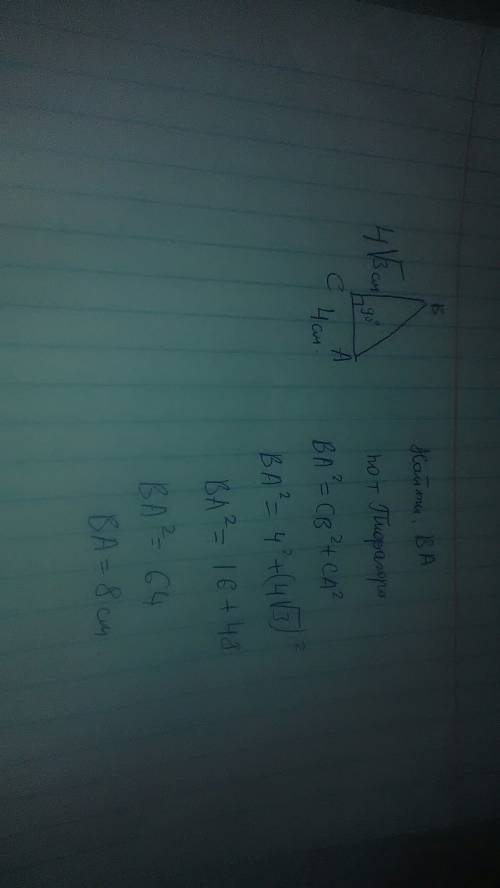 Б
4√3 см
90°
C
4 см.
A
Найти. BA
по т Пифагора
BA² = CB² + CA²
BA² = 4² + (4√3)²
BA² = 16 + 48
BA² = 64
BA = 8 см.